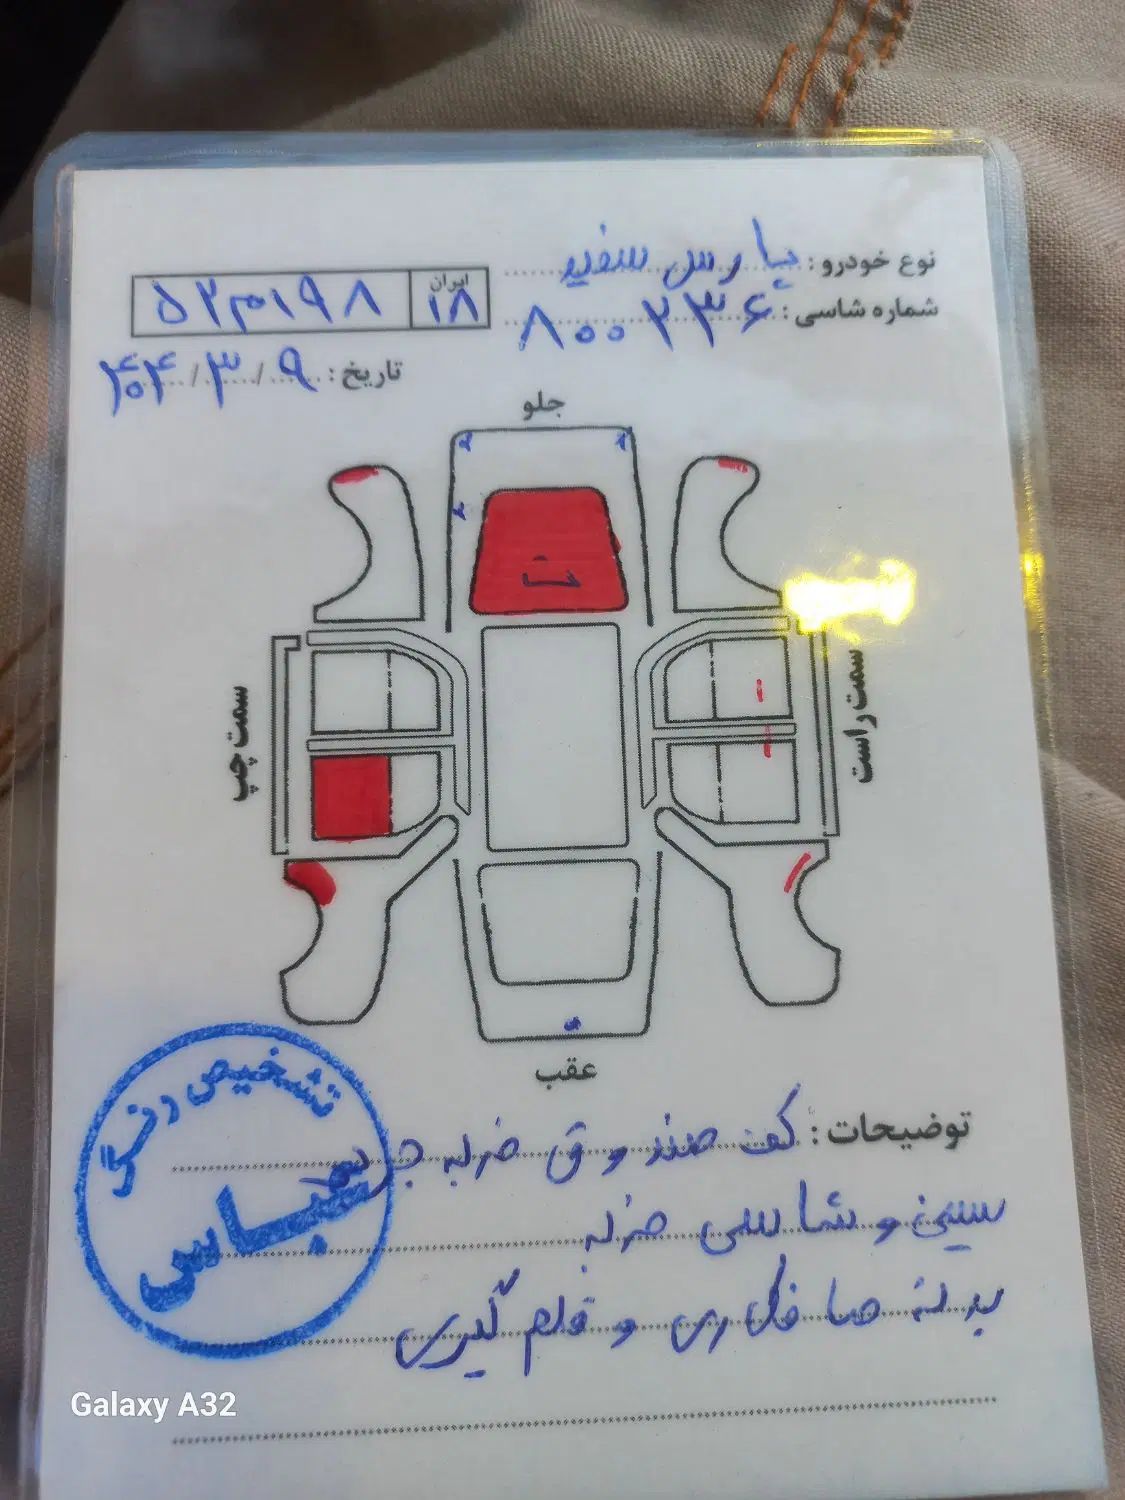 نوع خودرو: پارس سفید
شماره شاسی: ۸۰۰۲۳۶
۵۲م۱۹۸ ایران ۱۸
تاریخ: ۴۰۴/۳/۹
جلو
ت
سمت چپ
سمت راست
عقب
توضیحات: کف صندوق ضربه جزء
سینی و شاسی ضربه
بدنه صافکاری و قلم گیری
تشخیص رنگ
عباس
Galaxy A32